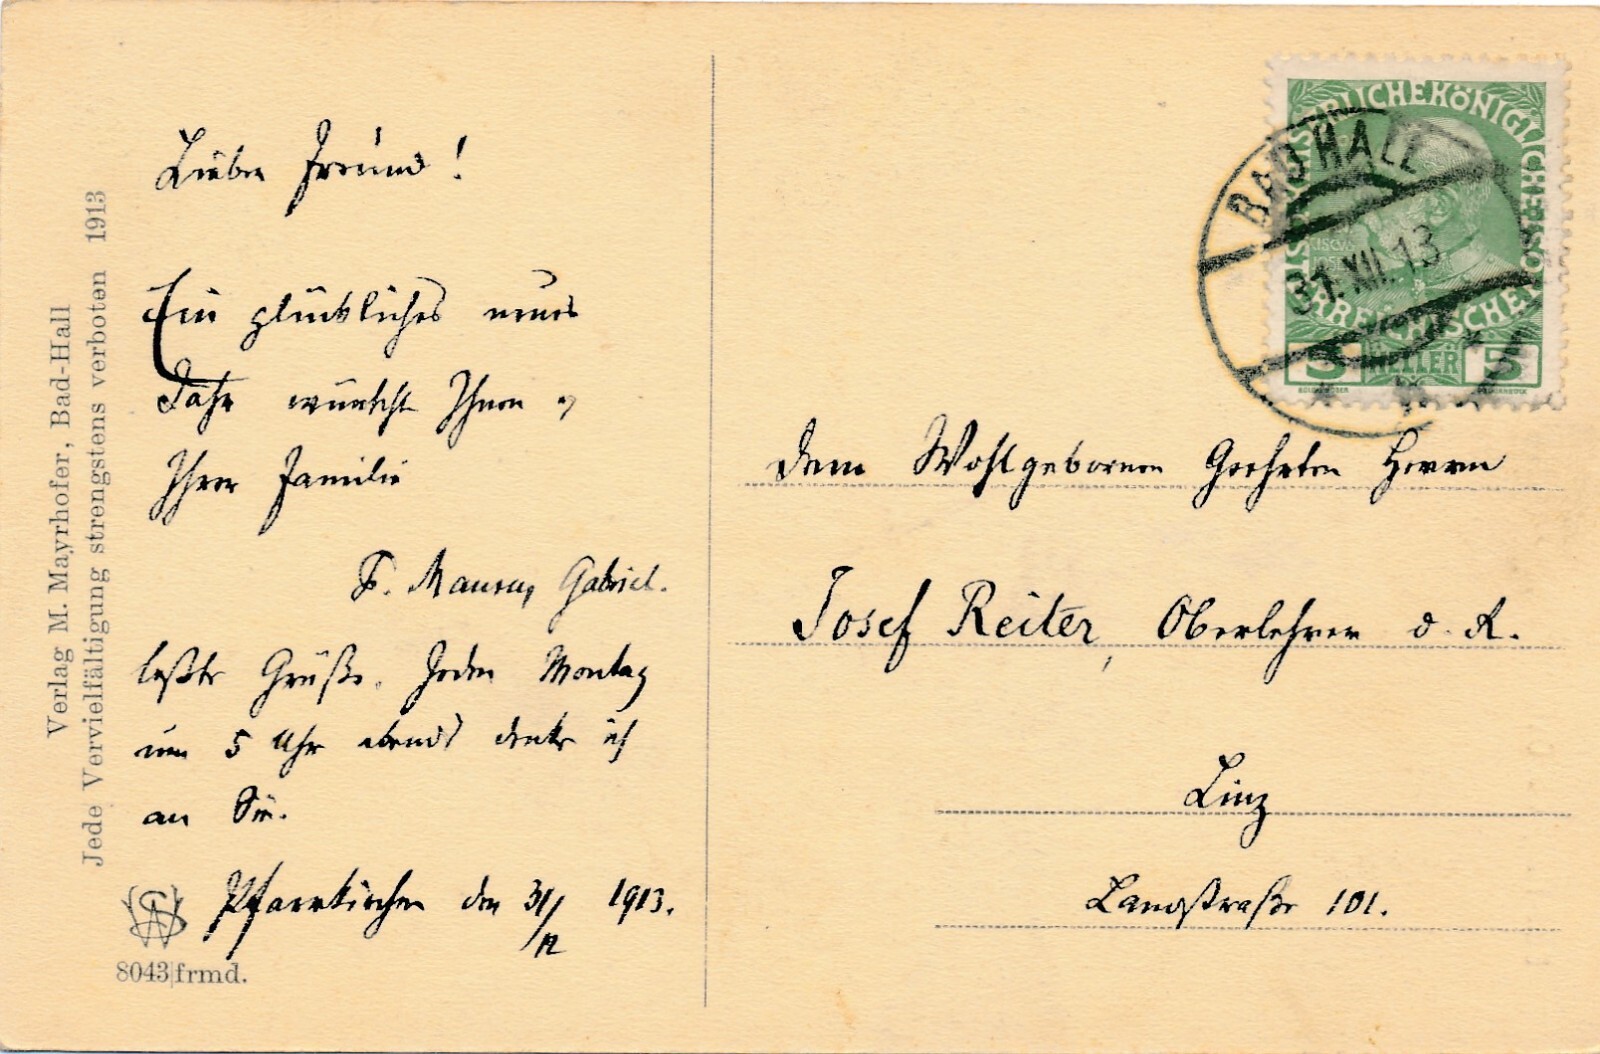 Lieber Freund!
Ein glückliches neues
Jahr wünscht Ihnen
Ihrer Familie
Gabriel.
Grüße. Jeden Montag
um 5 Uhr abends denke ich
an Sie.
Pfarrkirchen den 31/12 1913.
Verlag M. Mayrhofer, Bad-Hall
Jede Vervielfältigung strengstens verboten 1913
8043|frmd.
KAISERLICHE KÖNIGLICHE ÖSTERREICHISCHE
5 HELLER 5
BAD HALL
31.XII.13
Dem Wohlgebornen Geehrten Herrn
Josef Reiter, Oberlehrer d. R.
Linz
Landstraße 101.